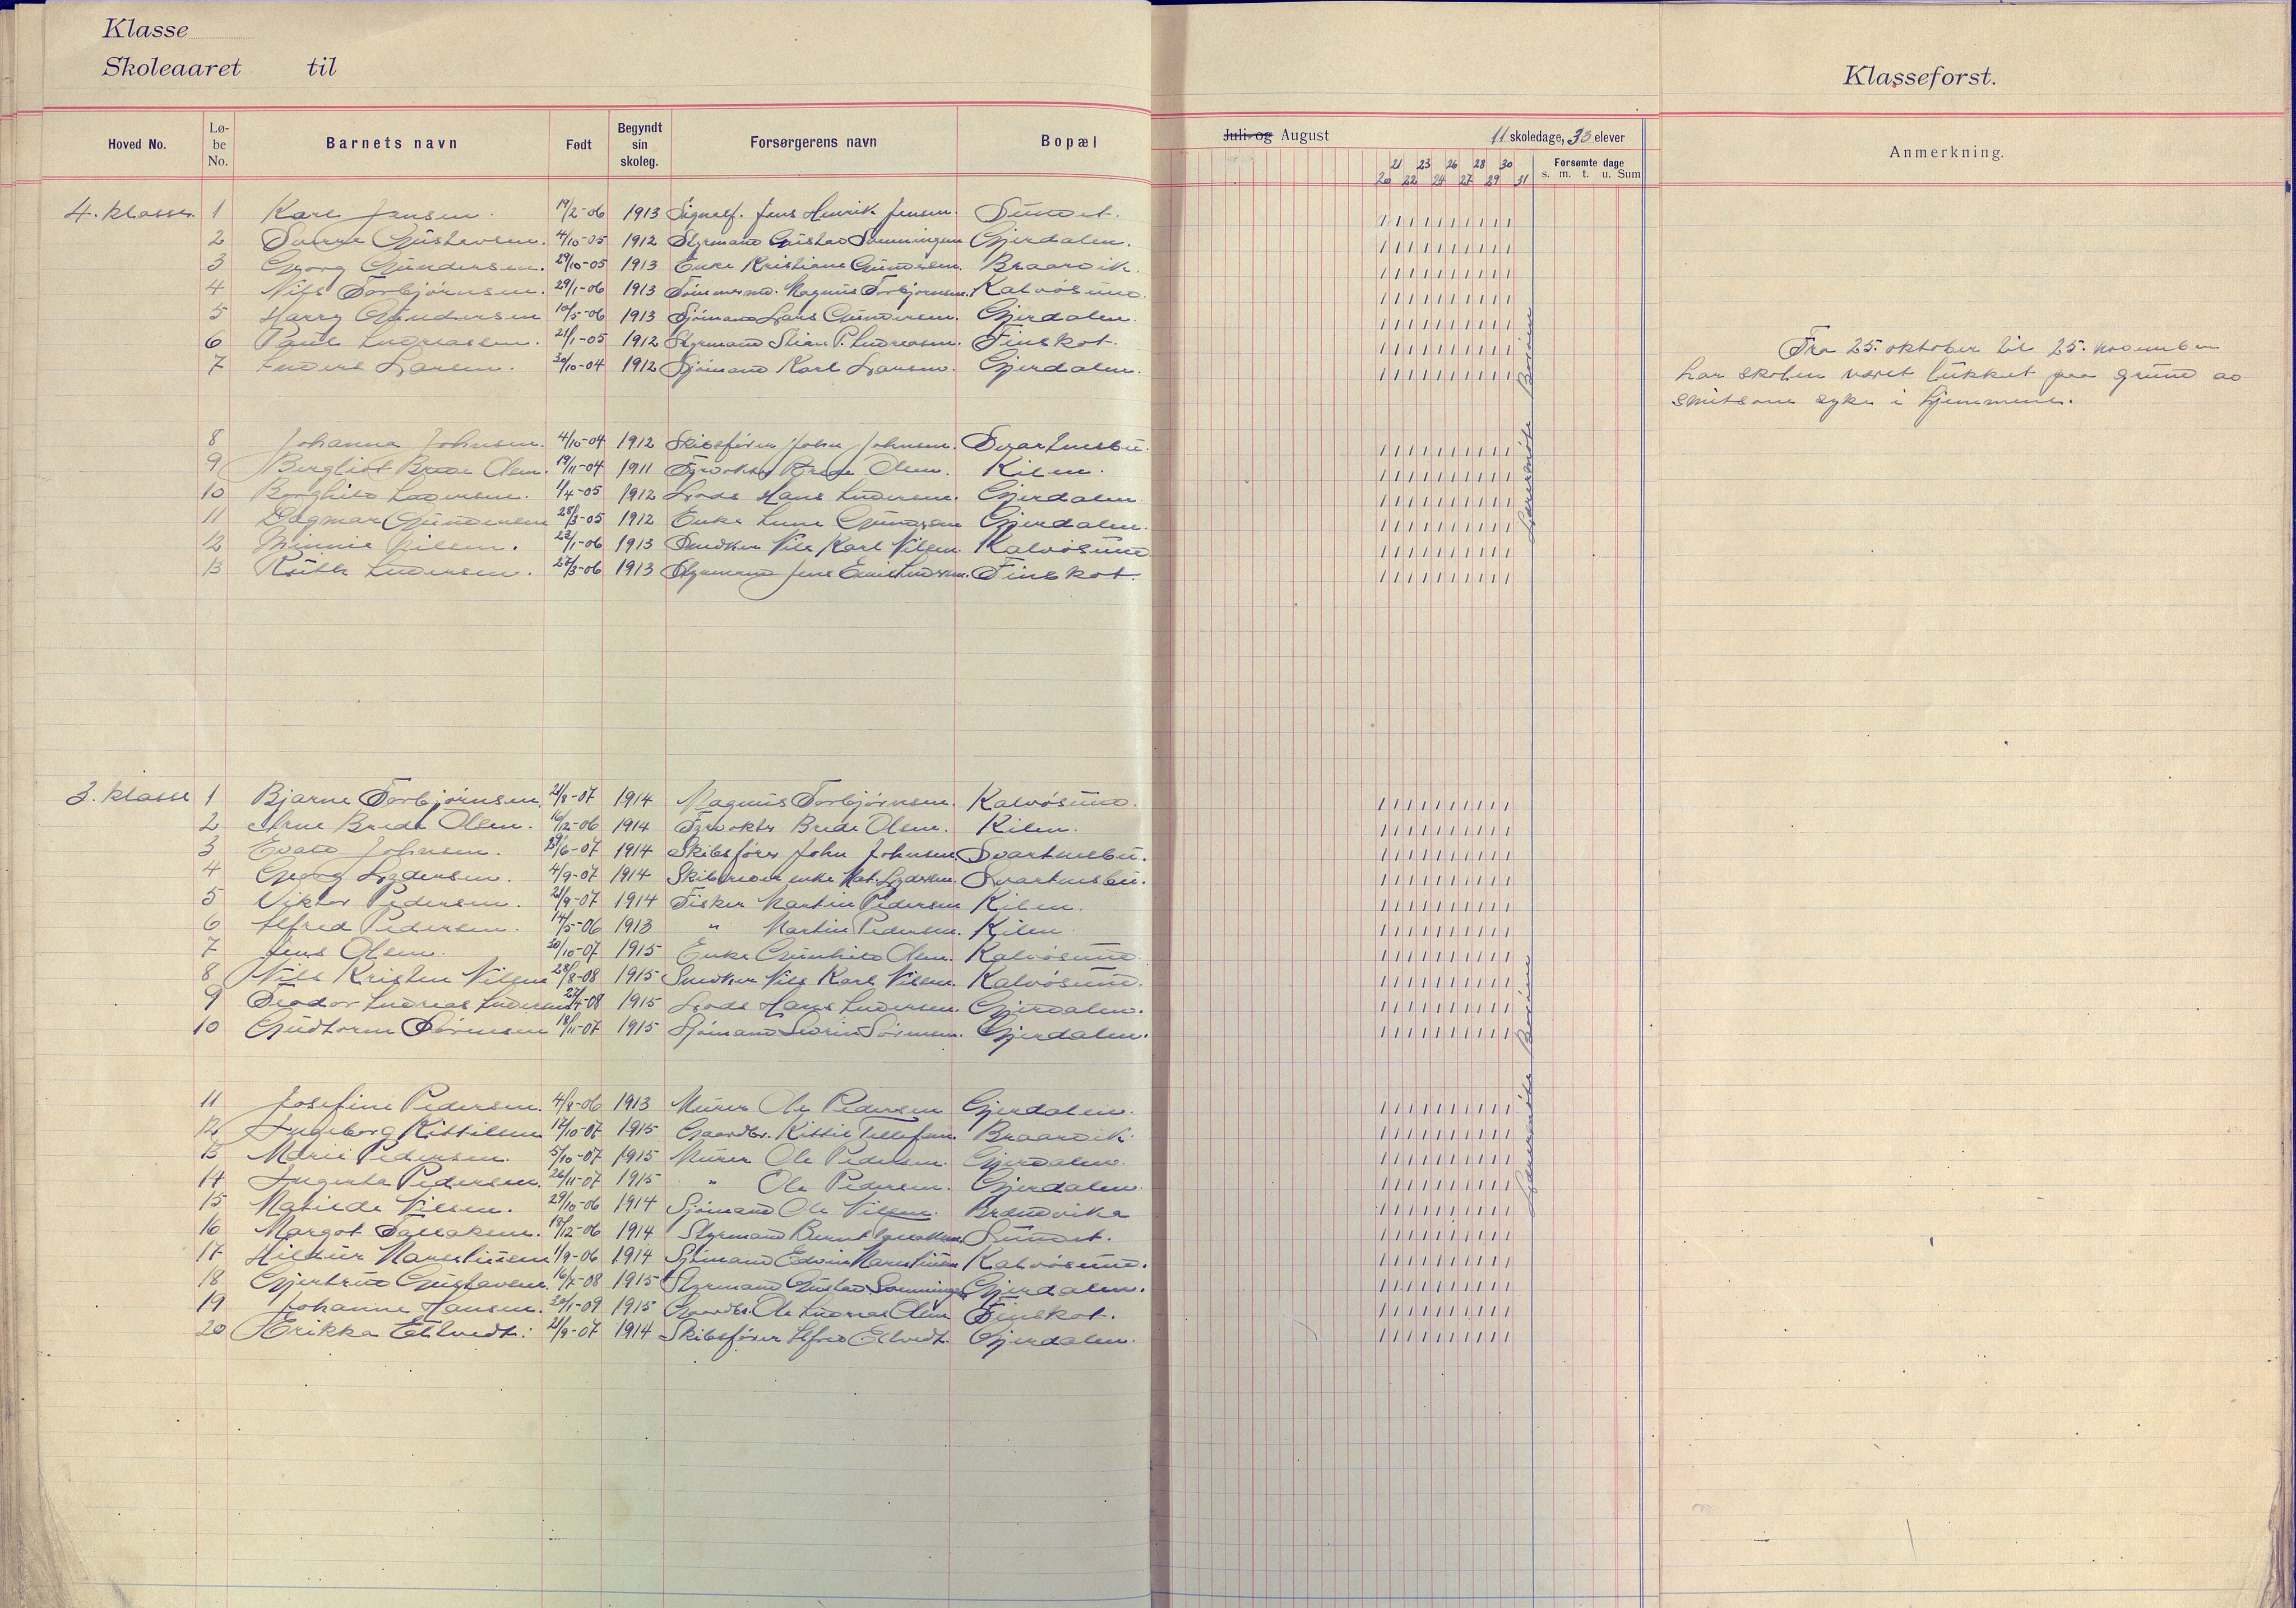 Klasse
Skoleaaret til
Klasseforst.
Hoved No. Lø-be No. Barnets navn Født Begyndt sin skoleg. Forsørgerens navn Bopæl
Juli og August 11 skoledage, 33 elever
Forsømte dage
s. m. t. u. Sum
Anmerkning.
21 23 26 28 30
20 22 24 27 29 31
4. klasse. 1 Karl Jensen. 19/2-06 1913 Signalf. Jens Henrik Jensen. Sundet.
2 Sverre Gustavsen. 4/10-05 1912 Styrmand Gustav Sønningsen Gjerdalen.
3 Georg Gundersen. 29/10-05 1913 Enke Kristiane Gundersen. Braarvik.
4 Nils Torbjørnsen. 29/1-06 1913 Tømmermd. Magnus Torbjørnsen. Kalvøsund.
5 Harry Gundersen 10/5-06 1913 Sjømand Lars Gundersen. Gjerdalen.
6 Paul Andreassen. 21/1-05 1912 Styrmand Stian P. Andreasen. Finskot.
7 Anders Larsen. 30/10-04 1912 Sjømand Karl Larsen. Gjerdalen.
8 Johanna Johnsen. 4/10-04 1912 Skibsfører John Johnsen. Svartnesbu.
9 Bergliot Brede Olsen. 19/11-04 1911 Fyrvokter Brede Olsen. Kilen.
10 Borghild Andersen. 1/4-05 1912 Lods Hans Andersen. Gjerdalen
11 Dagmar Gundersen 28/3-05 1912 Enke Anne Gundersen Gjerdalen.
12 Minnie Nilsen. 22/1-06 1913 Snedker Nils Karl Nilsen. Kalvøsund
13 Ruth Andersen. 27/3-06 1913 Styrmand Jens Emil Andersen. Finskot.
Lærermøte Brevine
Fra 25. oktober til 25. november
har skolen været lukket paa grund av
smitsom syke i hjemmene.
3. klasse 1 Bjarne Torbjørnsen. 21/8-07 1914 Magnus Torbjørnsen. Kalvøsund.
2 Arne Brede Olsen. 16/12-06 1914 Fyrvokter Brede Olsen. Kilen.
3 Evald Johnsen. 29/6-07 1914 Skibsfører John Johnsen Svartnesbu.
4 Georg Lydersen. 4/9-07 1914 Skibsreder enke Mat. Lydersen. Svartnesbu.
5 Viktor Pedersen. 21/9-07 1914 Fisker Martin Pedersen Kilen.
6 Alfred Pedersen. 14/5-06 1913 " Martin Pedersen. Kilen
7 Jens Olsen. 30/10-07 1915 Enke Gunhild Olsen. Kalvøsund
8 Nils Kristen Nilsen 28/8-08 1915 Snedker Nils Karl Nilsen. Kalvøsund.
9 Teodor Andreas Andersen 27/4-08 1915 Lods Hans Andersen. Gjerdalen.
10 Gudtorm Sørensen 18/11-07 1915 Sjømand Søren Sørensen. Gjerdalen.
11 Josefine Pedersen. 4/8-06 1913 Murer Ole Pedersen Gjerdalen.
12 Ingeborg Kittilsen 17/10-07 1915 Gaardbr. Kittil Tellefsen. Braarvik.
13 Marie Pedersen. 5/10-07 1915 Murer Ole Pedersen. Gjerdalen.
14 Ingerta Pedersen. 26/11-07 1915 " Ole Pedersen. Gjerdalen.
15 Matilde Nilsen. 29/10-06 1914 Sjømand Ole Nilsen. Brændvika
16 Margot Tallaksen. 18/12-06 1914 Styrmand Bernt Tallaksen Sundet.
17 Hildur Marcelinsen 1/9-06 1914 Sjømand Edvin Marcelinsen Kalvøsund.
18 Gjertrud Gustavsen 16/7-08 1915 Styrmand Gustav Sønningsen Gjerdalen.
19 Johanne Hansen. 30/1-09 1915 Gaardbr. Ole Andreas Olsen Finskot.
20 Erikka Ellvedt. 21/9-07 1914 Skibsfører Alfred Ellvedt. Gjerdalen.